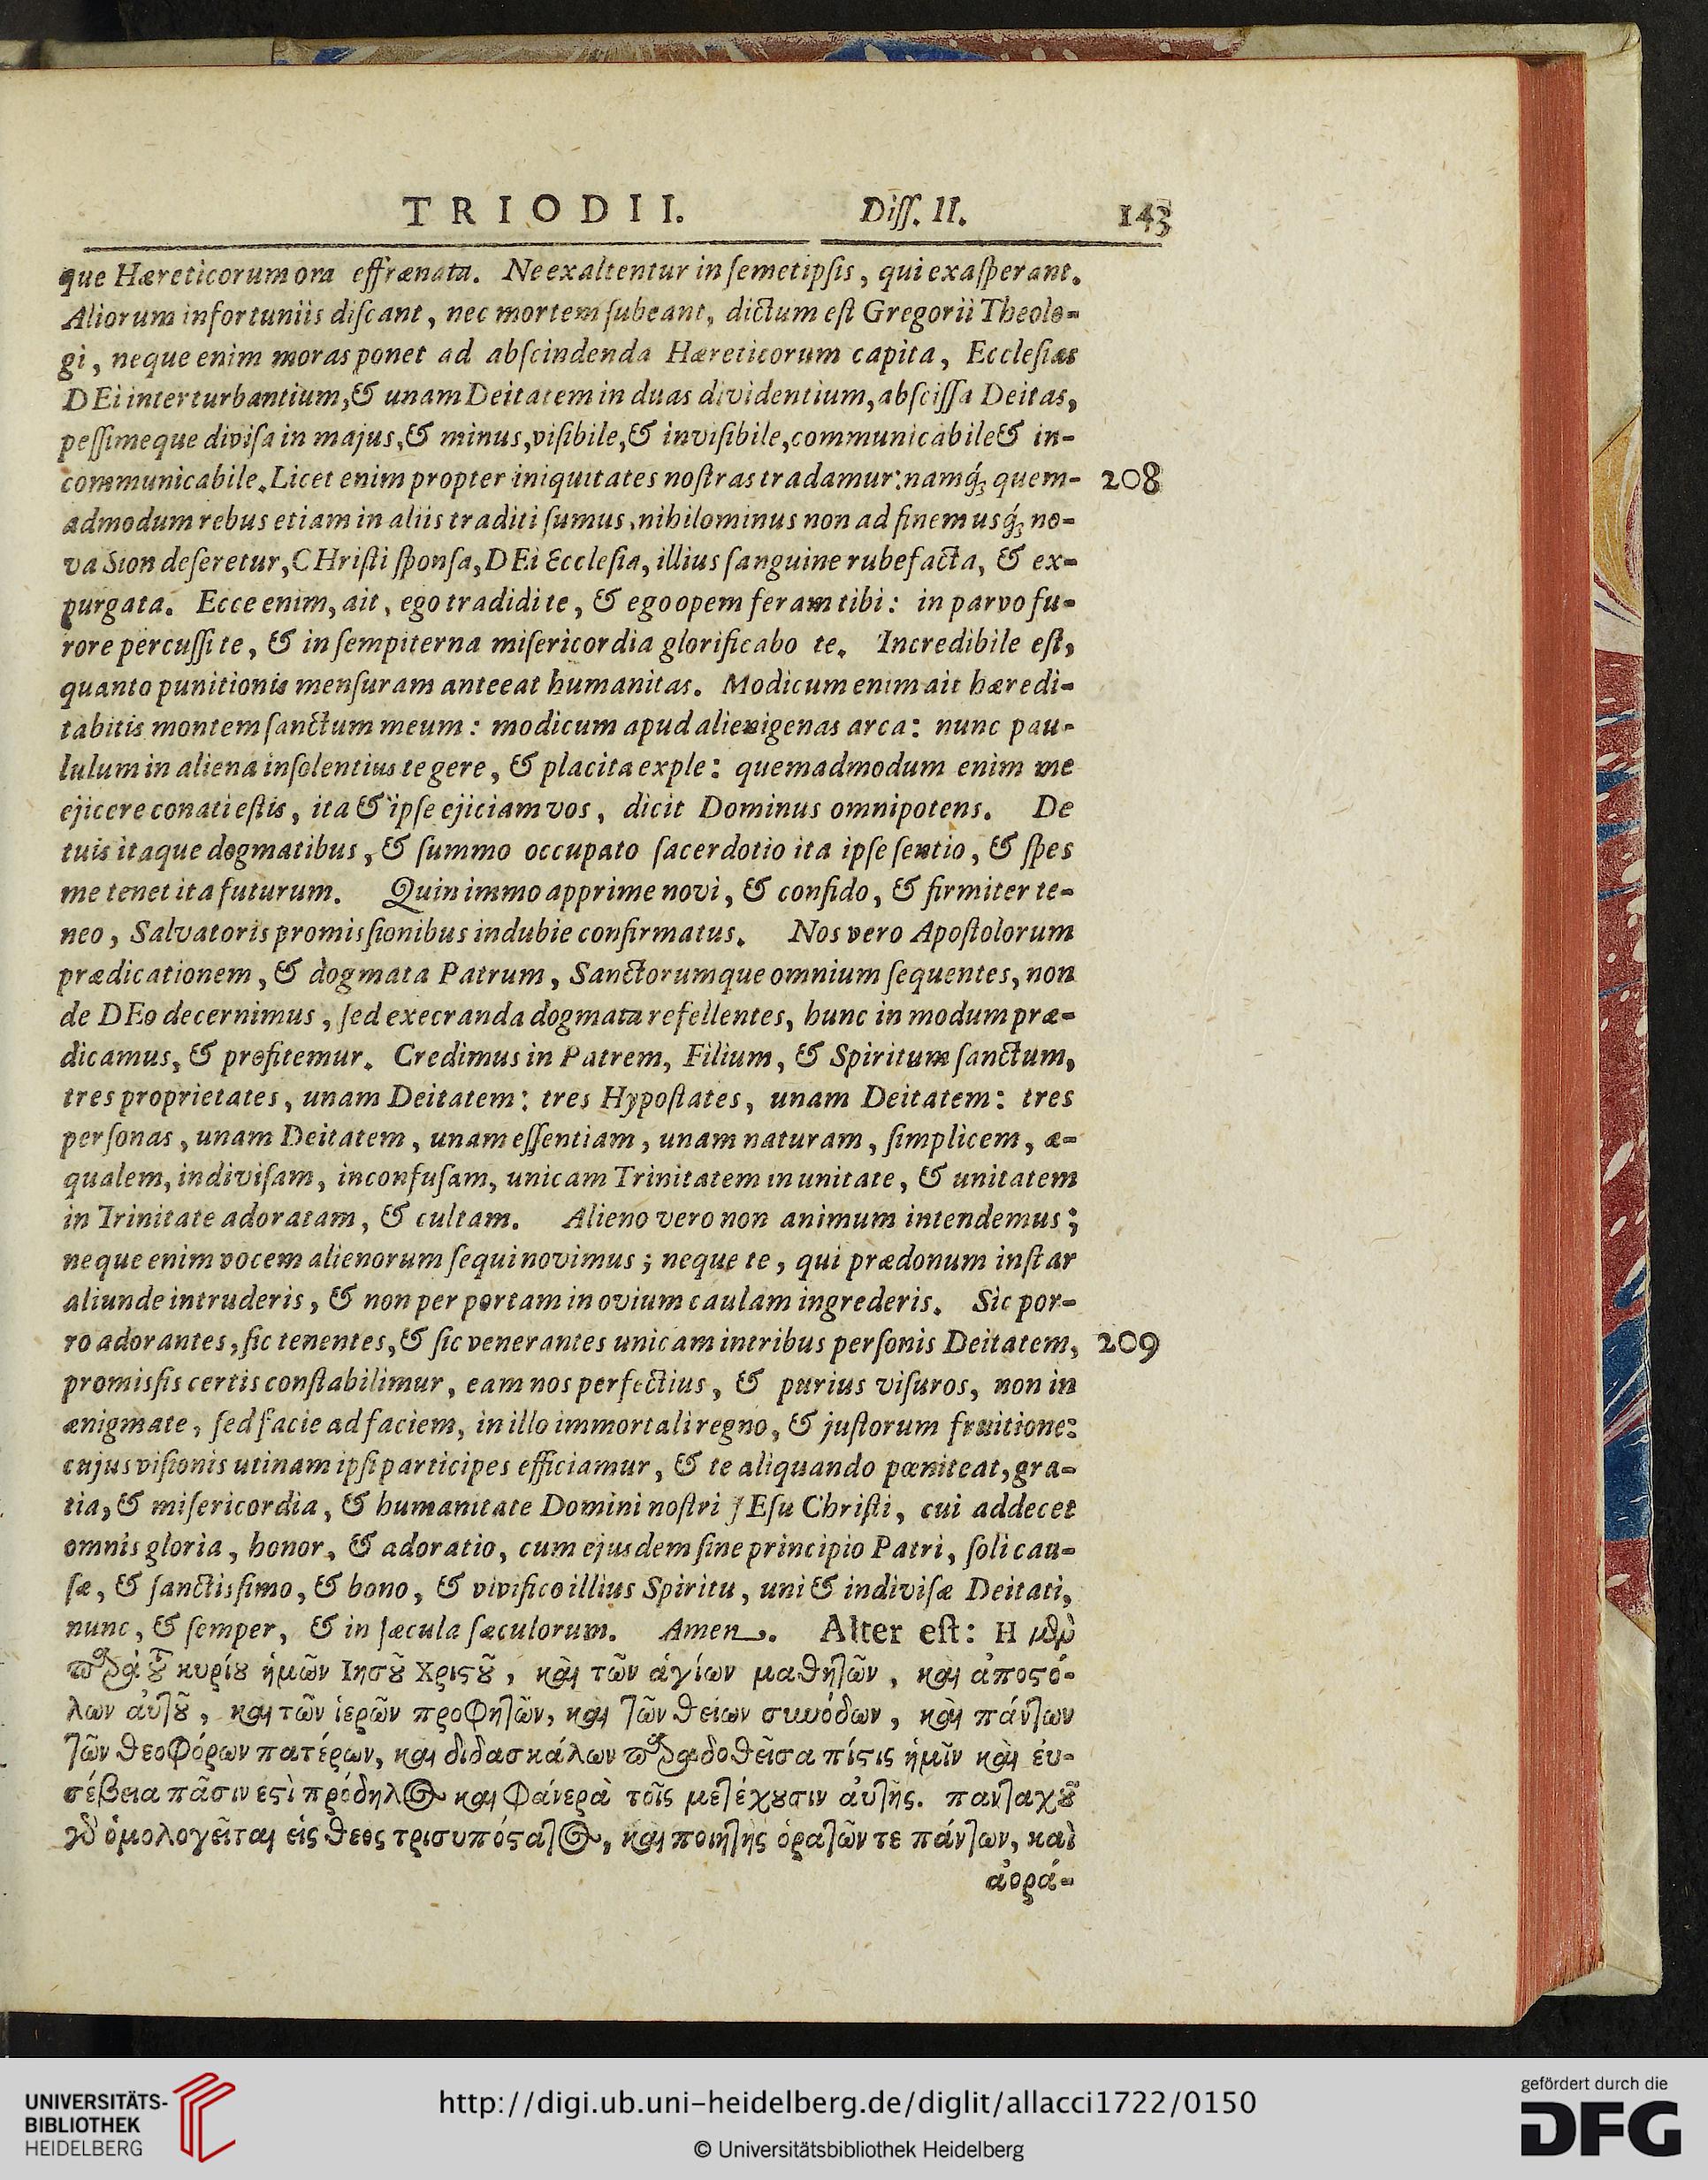 TRIODII. Diſſ. II. 143
que Hæreticorum ora effrænata. Ne exaltentur in ſemetipſis, qui exaſperant.
Aliorum infortuniis diſcant, nec mortem ſubeant, dictum eſt Gregorii Theolo-
gi, neque enim moras ponet ad abſcindenda Hæreticorum capita, Eccleſias
DEi interturbantium, & unam Deitatem in duas dividentium, abſciſſa Deitas,
peſſimeque diviſa in majus, & minus, viſibile, & inviſibile, communicabile & in-
communicabile. Licet enim propter iniquitates noſtras tradamur: namq́; quem- 208
admodum rebus etiam in aliis traditi ſumus, nihilominus non ad finem usq́; no-
va Sion deſeretur, CHriſti ſponſa, DEi Eccleſia, illius ſanguine rubefacta, & ex-
purgata. Ecce enim, ait, ego tradidi te, & ego opem feram tibi: in parvo fu-
rore percuſſi te, & in ſempiterna miſericordia glorificabo te. Incredibile eſt,
quanto punitionis menſuram anteeat humanitas. Modicum enim ait hæredi-
tabitis montem ſanctum meum: modicum apud alienigenas arca: nunc pau-
lulum in aliena inſolentius te gere, & placita exple: quemadmodum enim me
ejicere conati eſtis, ita & ipſe ejiciam vos, dicit Dominus omnipotens. De
tuis itaque dogmatibus, & ſummo occupato ſacerdotio ita ipſe ſentio, & ſpes
me tenet ita futurum. Quin immo apprime novi, & confido, & firmiter te-
neo, Salvatoris promiſſionibus indubie confirmatus. Nos vero Apoſtolorum
prædicationem, & dogmata Patrum, Sanctorumque omnium ſequentes, non
de DEo decernimus, ſed execranda dogmata refellentes, hunc in modum præ-
dicamus, & profitemur. Credimus in Patrem, Filium, & Spiritum ſanctum,
tres proprietates, unam Deitatem: tres Hypoſtates, unam Deitatem: tres
perſonas, unam Deitatem, unam eſſentiam, unam naturam, ſimplicem, æ-
qualem, indiviſam, inconfuſam, unicam Trinitatem in unitate, & unitatem
in Trinitate adoratam, & cultam. Alieno vero non animum intendemus;
neque enim vocem alienorum ſequi novimus; neque te, qui prædonum inſtar
aliunde intruderis, & non per portam in ovium caulam ingrederis. Sic por-
ro adorantes, ſic tenentes, & ſic venerantes unicam in tribus perſonis Deitatem, 209
promiſſis certis conſtabilimur, eam nos perfectius, & purius viſuros, non in
ænigmate, ſed facie ad faciem, in illo immortali regno, & juſtorum fruitione:
cujus viſionis utinam ipſi participes efficiamur, & te aliquando pœniteat, gra-
tia, & miſericordia, & humanitate Domini noſtri JEſu Chriſti, cui addecet
omnis gloria, honor, & adoratio, cum ejusdem ſine principio Patri, ſoli cau-
ſæ, & ſanctiſſimo, & bono, & vivifico illius Spiritu, uni & indiviſæ Deitati,
nunc, & ſemper, & in ſæcula ſæculorum. Amen. Alter eſt: Η μὲν
παρὰ τοῦ κυρίου ἡμῶν Ιησοῦ Χριςοῦ, καὶ τῶν ἁγίων μαθητῶν, καὶ ἀποςό-
λων ἀυτοῦ, καὶ τῶν ἱερῶν προφητῶν, καὶ τῶν θείων συνόδων, καὶ πάντων
τῶν θεοφόρων πατέρων, καὶ διδασκάλων παραδοθεῖσα πίςις ἡμῖν καὶ ἐυ-
σέβεια πᾶσιν εςὶ πρόδηλος καὶ φάνερὰ τοῖς μετέχουσιν ἀυτῆς. πανταχοῦ
γὰρ ὁμολογεῖται εἰς θεος τρισυπόςατος, καὶ ποιητὴς ὁρατῶν τε πάντων, καὶ
ἀορά-
UNIVERSITÄTS-
BIBLIOTHEK
HEIDELBERG
http://digi.ub.uni-heidelberg.de/diglit/allacci1722/0150
© Universitätsbibliothek Heidelberg
gefördert durch die
DFG